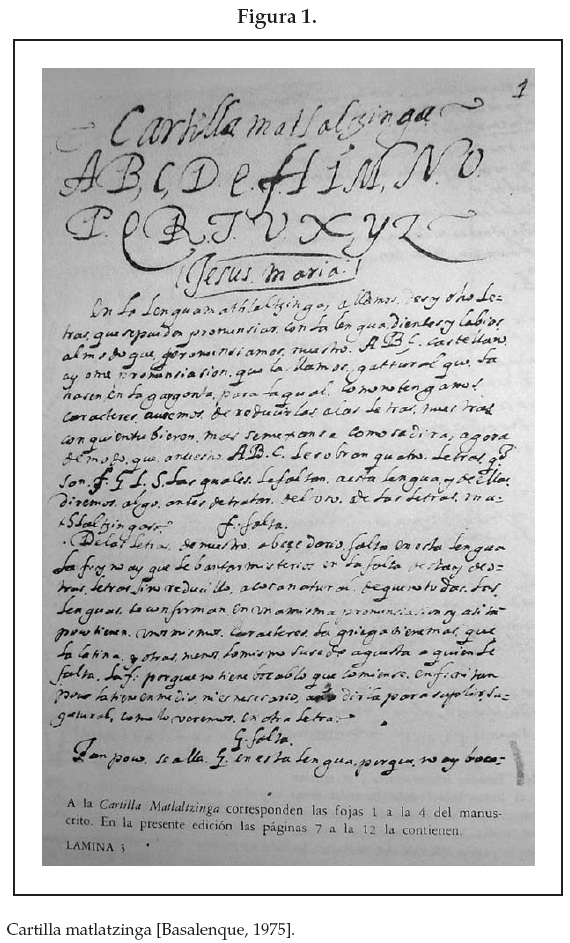 Figura 1.
1
Cartilla matlaltzinga
A B, C, D. e. f. H I M, N. O.
P. Q R. T. V. X, Y Z
Jesus. maria.
En la lenguamathlaltzinga, allamos, des y ocho le-
tras, que se pueden pronunsiar, con la lengua, dientes, y labios,
al modo que, pronunsiamos, nuestro. A B C. castellano
ay otra, pronunsiasion. que la llamos, guttural que. la
hasen, en la garganta, para la qual. como no tengamos
caracteres, avemos, de redusirlas a las letras, nuestras
con quien tubieron, mas semexansa como se dira, agora
demodo, que, anuestro. A.B.C. le sobran quatro. letras, q
son. F. G L. S. las quales. le faltan, aesta lengua, y de ellas
diremos, algo, antes de tratar. del uso. de las letras. ma-
tlaltzingas.
f. falta.
De las letras, de nuestro. abecedario, falta en esta lengua
la f. y no ay que lebantar misterios en la falta de esta y de o-
tras, letras, sino redusillo, a cosa natural. de que no todas. las
lenguas, se conforman en una misma, pronunsiasion, y asi tan-
poco tienen. unos mismos. caracteres. la griega tiene mas, que
la latina, y otras, menos. lo mismo susede aquesta a quien le
falta. la f. porque no tiene bocablo que comiense. en f. ni tan
poco la tiene en medio, ni es nesesario, desirla para suplir, su-
gatural, como lo veremos. en otra letra.
G. falta.
Tan poco. se alla. G. en esta lengua, porque, no ay boca-
A la Cartilla Matlaltzinga corresponden las fojas 1 a la 4 del manus-
crito. En la presente edición las páginas 7 a la 12 la contienen.
LAMINA 3
Cartilla matlatzinga [Basalenque, 1975].